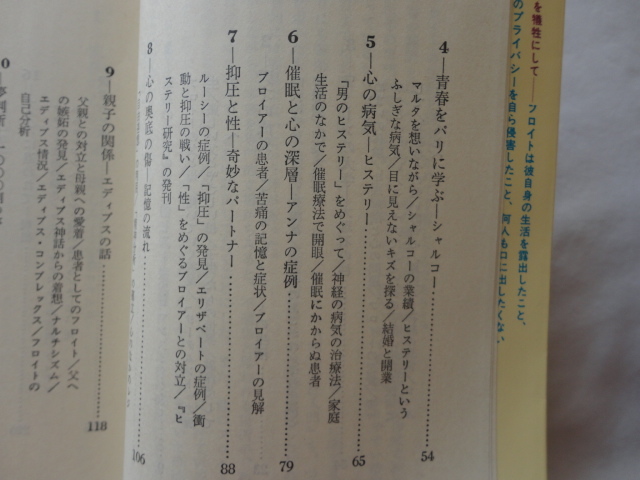 を犠牲にして――フロイトは彼自身の生活を露出したこと、
のプライバシーを自ら侵害したこと、何人も口に出したくない
4―青春をパリに学ぶ―シャルコー……54
マルタを想いながら／シャルコーの業績／ヒステリーという
ふしぎな病気／目に見えないキズを探る／結婚と開業
5―心の病気―ヒステリー……65
「男のヒステリー」をめぐって／神経の病気の治療法／家庭
生活のなかで／催眠療法で開眼／催眠にかからぬ患者
6―催眠と心の深層―アンナの症例……79
ブロイアーの患者／苦痛の記憶と症状／ブロイアーの見解
7―抑圧と性―奇妙なパートナー……88
ルーシーの症例／「抑圧」の発見／エリザベートの症例／衝
動と抑圧の戦い／「性」をめぐるブロイアーとの対立／『ヒ
ステリー研究』の発刊
8―心の奥底の傷―記憶の流れ……106
9―親子の関係―エディプスの話……118
父親との対立と母親への愛着／患者としてのフロイト／父へ
の嫉妬の発見／エディプス神話からの着想／ナルチシズム／
エディプス情況／エディプス・コンプレックス／フロイトの
自己分析